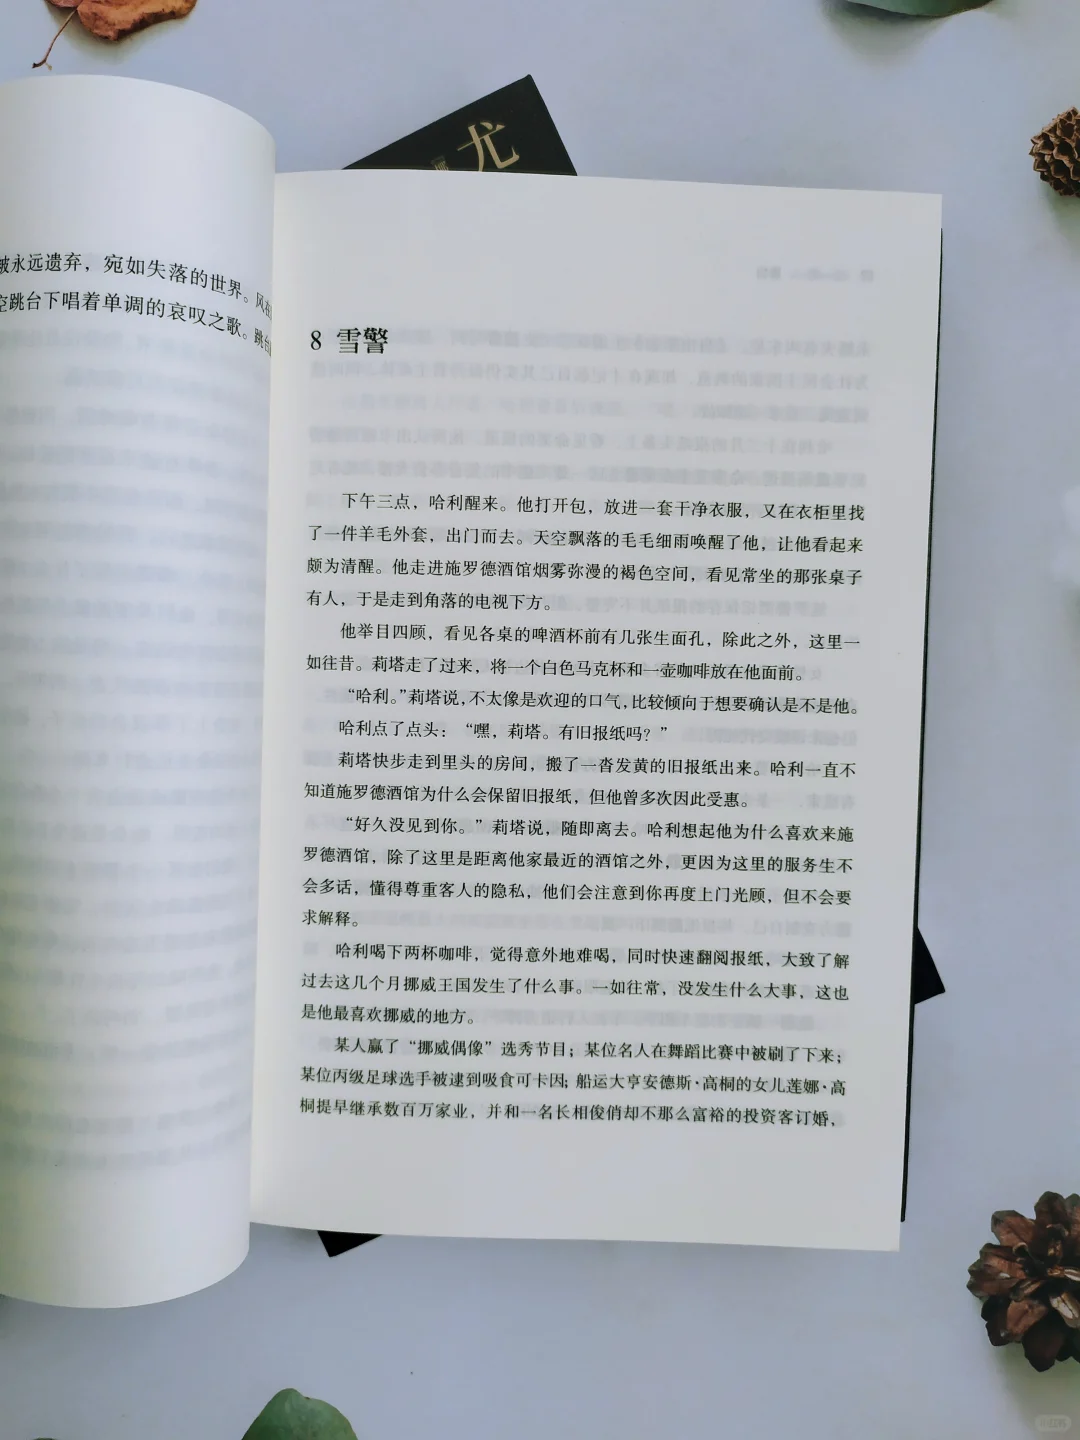 尤
被永远遗弃，宛如失落的世界。风在
空跳台下唱着单调的哀叹之歌。跳台
8 雪警
下午三点，哈利醒来。他打开包，放进一套干净衣服，又在衣柜里找
了一件羊毛外套，出门而去。天空飘落的毛毛细雨唤醒了他，让他看起来
颇为清醒。他走进施罗德酒馆烟雾弥漫的褐色空间，看见常坐的那张桌子
有人，于是走到角落的电视下方。
他举目四顾，看见各桌的啤酒杯前有几张生面孔，除此之外，这里一
如往昔。莉塔走了过来，将一个白色马克杯和一壶咖啡放在他面前。
“哈利。”莉塔说，不太像是欢迎的口气，比较倾向于想要确认是不是他。
哈利点了点头：“嘿，莉塔。有旧报纸吗？”
莉塔快步走到里头的房间，搬了一沓发黄的旧报纸出来。哈利一直不
知道施罗德酒馆为什么会保留旧报纸，但他曾多次因此受惠。
“好久没见到你。”莉塔说，随即离去。哈利想起他为什么喜欢来施
罗德酒馆，除了这里是距离他家最近的酒馆之外，更因为这里的服务生不
会多话，懂得尊重客人的隐私，他们会注意到你再度上门光顾，但不会要
求解释。
哈利喝下两杯咖啡，觉得意外地难喝，同时快速翻阅报纸，大致了解
过去这几个月挪威王国发生了什么事。一如往常，没发生什么大事，这也
是他最喜欢挪威的地方。
某人赢了“挪威偶像”选秀节目；某位名人在舞蹈比赛中被刷了下来；
某位丙级足球选手被逮到吸食可卡因；船运大亨安德斯·高桐的女儿莲娜·高
桐提早继承数百万家业，并和一名长相俊俏却不那么富裕的投资客订婚，